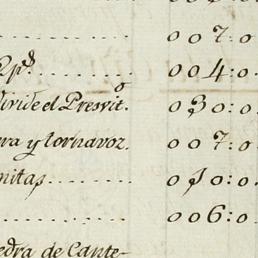 007:0
Rp.s 004:0
divide el Presvit.o 030:0
ra y tornavoz. 007:0
nitas 010:0
006:0
edra de Cante-